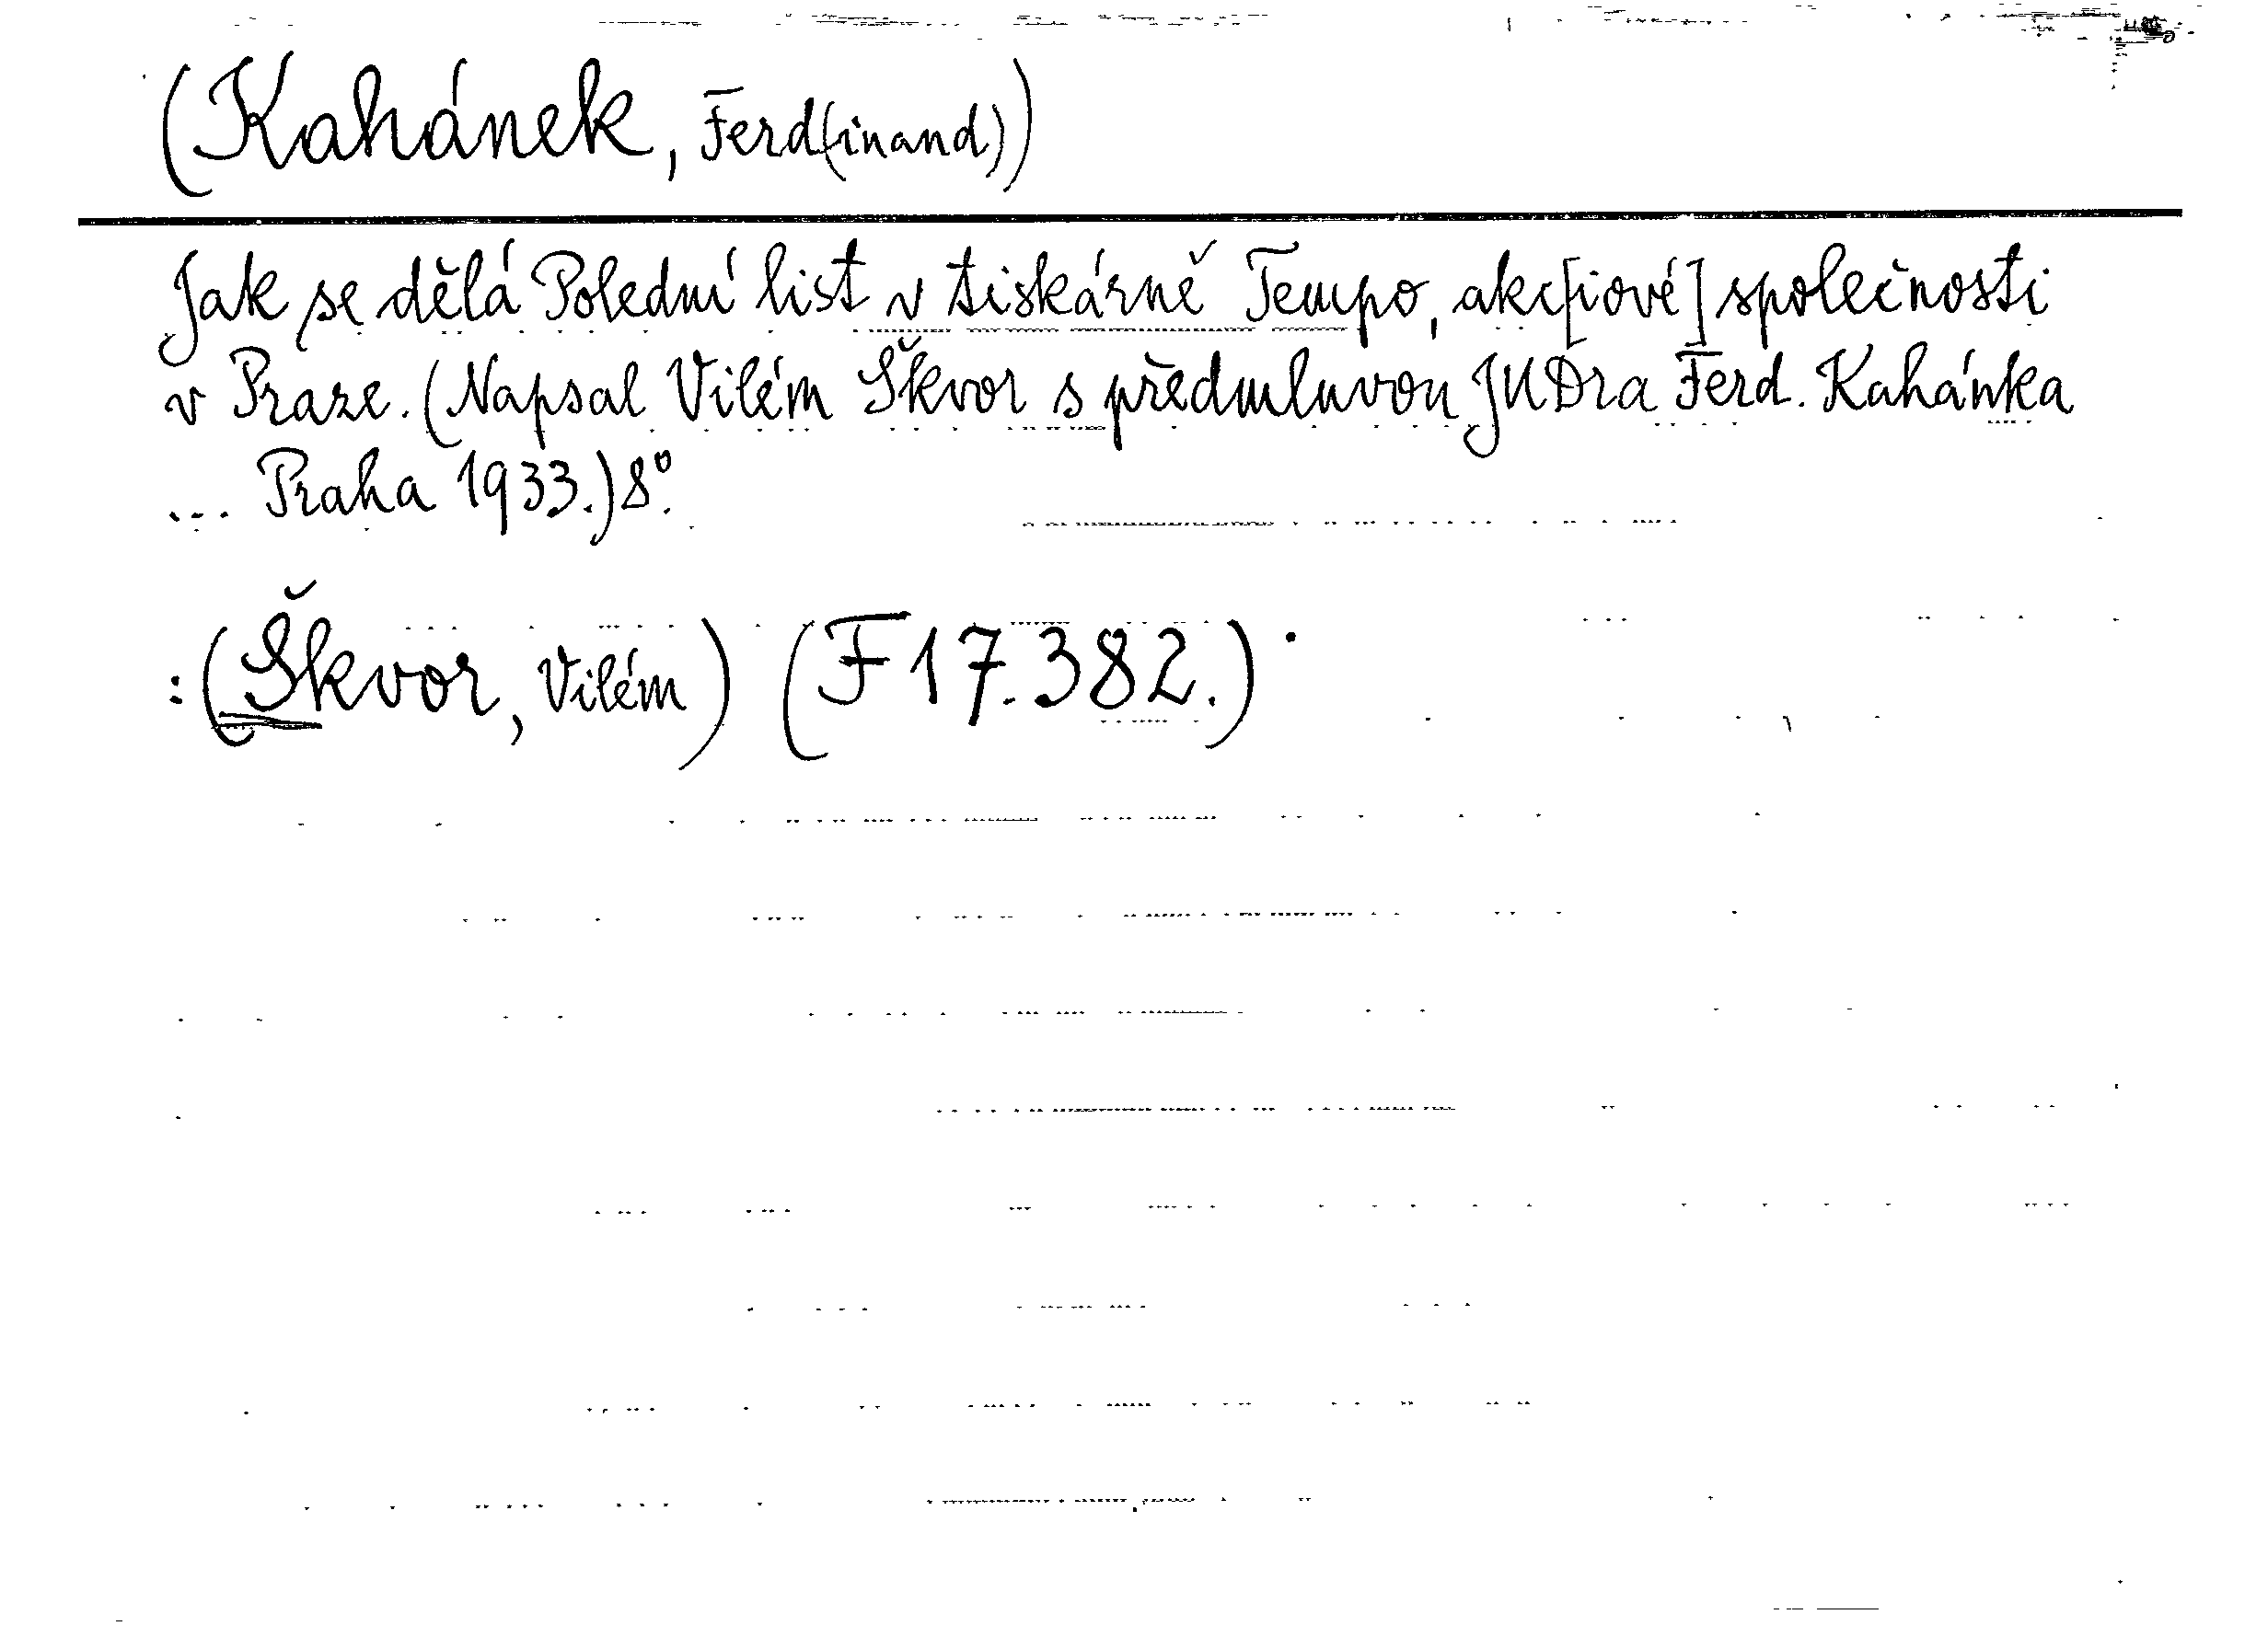 (Kahánek, Ferd(inand))
Jak se dělá Polední list v tiskárně Tempo, akc[iové] společnosti
v Praze. (Napsal Vilém Škvor s předmluvou JUDra Ferd. Kahánka
... Praha 1933.) 8°.
: (Škvor, Vilém) (F 17.382.)